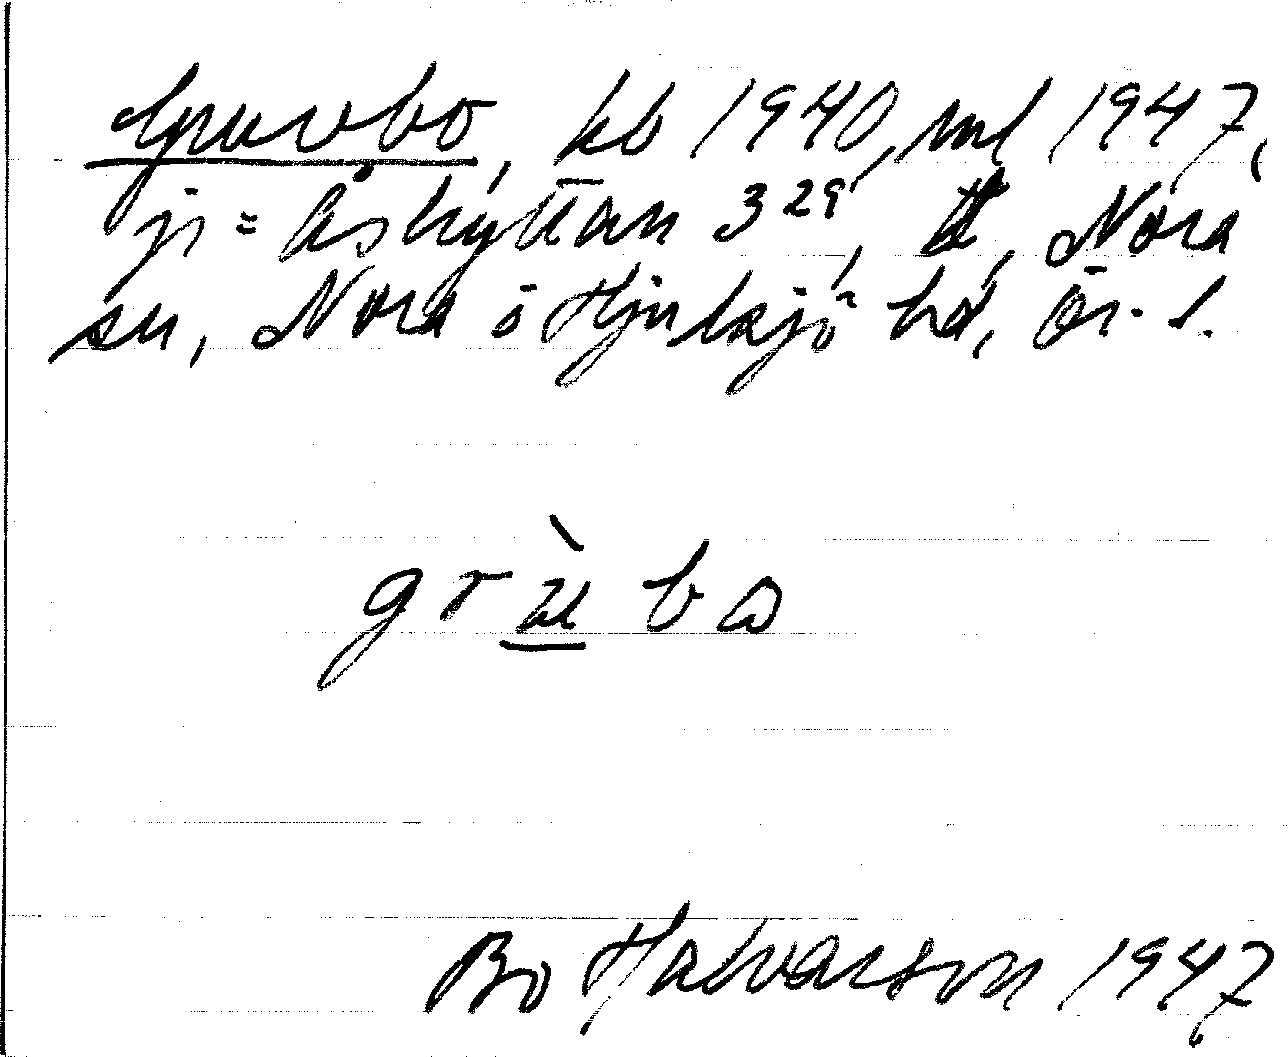 Gruvbo, kb 1940, ml 1947,
jr = Åshyttan 3²⁹, Nora
sn, Nora o Hjulsjö hd, Ör. l.
grù̲bo
Bo Halvarson 1947